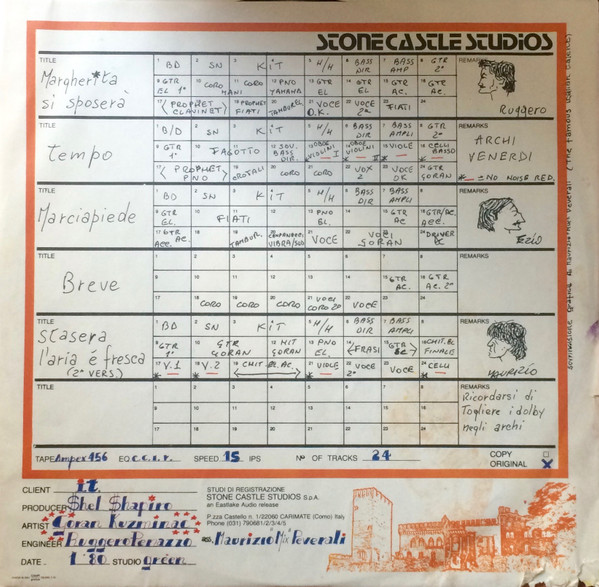 STONE CASTLE STUDIOS
TITLE
Margherita si sposerà
1 BD 2 SN 3 KIT 4 5 H/H 6 BASS DIR 7 BASS AMP 8 GTR 2ª
9 GTR EL 1ª 10 CORO 11 CORO MANI 12 PNO YAMAHA 13 GTR EL 14 GTR EL 15 GTR AC. 16 GTR AC.
17 (PROPHET CLAVINET) 18 19 PROPHET FIATI 20 TAMBUREL. 21 VOCE O.K. 22 VOCE 2ª 23 FIATI 24
REMARKS
Ruggero
TITLE
Tempo
1 B/D 2 SN 3 KIT 4 5 H/H 6 BASS DIR 7 BASS AMPLI 8 GTR 2ª
9 GTR 1ª 10 FAGOTTO 11 12 SOV. BASS DIR. 13 OBOE VIOLINI I 14 OBOE VIOLINI II 15 VIOLE 16 CELLI BASSO
17 (PROPHET PNO) 18 19 CROTALI 20 CORO 21 CORO 22 VOX 2 23 VOCE OK 24 GTR GORAN
REMARKS
ARCHI VENERDI
* — = NO NOISE RED.
TITLE
Marciapiede
1 BD 2 SN 3 KIT 4 5 H/H 6 BASS DIR 7 BASS AMPLI 8
9 GTR EL. 10 FIATI 11 12 13 PNO EL. 14 15 GTR AC 16 GTR/AC. ACC.
17 GTR AC. ACC. 18 19 TAMBUR. 20 VIBRA/SUD 21 VOCE 22 VOCI GORAN 23 24 DRIVER
REMARKS
EZIO
TITLE
Breve
1 2 3 4 5 6 7 8
9 10 11 12 13 14 15 GTR AC. 16 GTR AC. 2ª
17 18 CORO 19 CORO 20 CORO 21 VOCI CORO 2ª 22 VOCE 23 24
REMARKS
TITLE
Stasera l'aria é fresca
(2ª VERS.)
1 BD 2 SN 3 KIT 4 5 H/H 6 BASS DIR 7 BASS AMPLI 8
9 GTR 1ª 10 GTR GORAN 11 12 HIT GORAN 13 PNO EL. 14 (FRASI 15 GTR EL) 16 CHIT. EL FINALE
17 V.1 18 V.2 19 CHIT. EL. AC. 20 21 VIOLE 22 VOCE 2ª 23 VOCE 24 CELLI
REMARKS
MAURIZIO
TITLE
1 2 3 4 5 6 7 8
9 10 11 12 13 14 15 16
17 18 19 20 21 22 23 24
REMARKS
Ricordarsi di Togliere i dolby negli archi
TAPE Ampex 456 EQ C.C.I.R. SPEED 15 IPS Nº OF TRACKS 24 COPY
ORIGINAL X
CLIENT it
PRODUCER Shel Shapiro
ARTIST Goran Kuzminac
ENGINEER Ruggero Penazzo
DATE . 1 '80 STUDIO green
STUDI DI REGISTRAZIONE
STONE CASTLE STUDIOS S.p.A.
an Eastlake Audio release
P.zza Castello n. 1/22060 CARIMATE (Como) Italy
Phone (031) 790681/2/3/4/5
ASS. Maurizio "Mix" Peverali